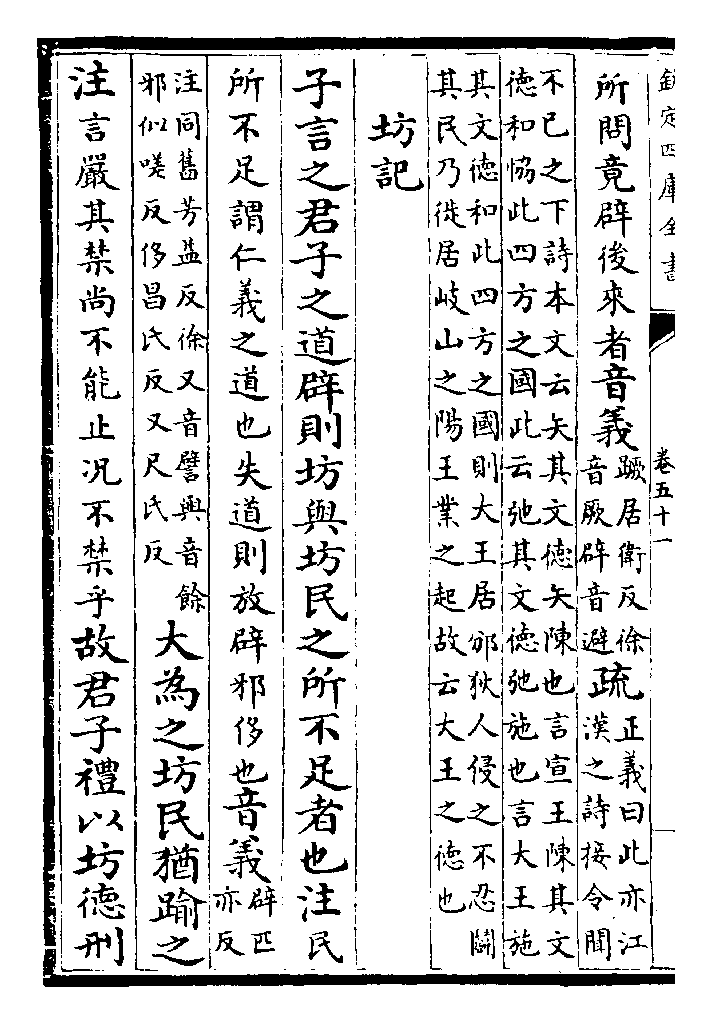 欽定四庫全書
卷五十一
所問竟辟後來者音義蹶居衛反徐
音厥辟音避疏正義曰此亦江
漢之詩接令聞
不已之下詩本文云矢其文德矢陳也言宣王陳其文
德和恊此四方之國此云弛其文德弛施也言大王施
其文德和此四方之國則大王居邠狄人侵之不忍鬭
其民乃徙居岐山之陽王業之起故云大王之德也
坊記
子言之君子之道辟則坊與坊民之所不足者也注民
所不足謂仁義之道也失道則放辟邪侈也音義辟匹
亦反
注同舊芳益反徐又音譬與音餘
邪似嗟反侈昌氏反又尺氏反
大為之坊民猶踰之
注言嚴其禁尚不能止况不禁乎故君子禮以坊德刑